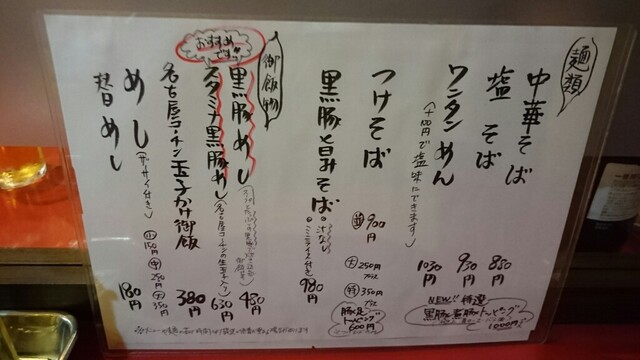 麺類
中華そば 850円
塩そば 930円
ワンタンめん 1030円
(+100円で塩味にできます)
つけそば
並 900円
大 250円プラス
特 350円プラス
黒豚と旨みそば 980円
・汁なし
・ミニライス付き
NEW!! 特選
1000円
豚足トッピング 600円
御飯物
おすすめです!!
黒豚めし 480円
スタミナ黒豚めし 630円
(名古屋コーチンの生玉子入り)
名古屋コーチン玉子かけ御飯 380円
めし
小 150円
中 250円
大 350円
替めし 180円